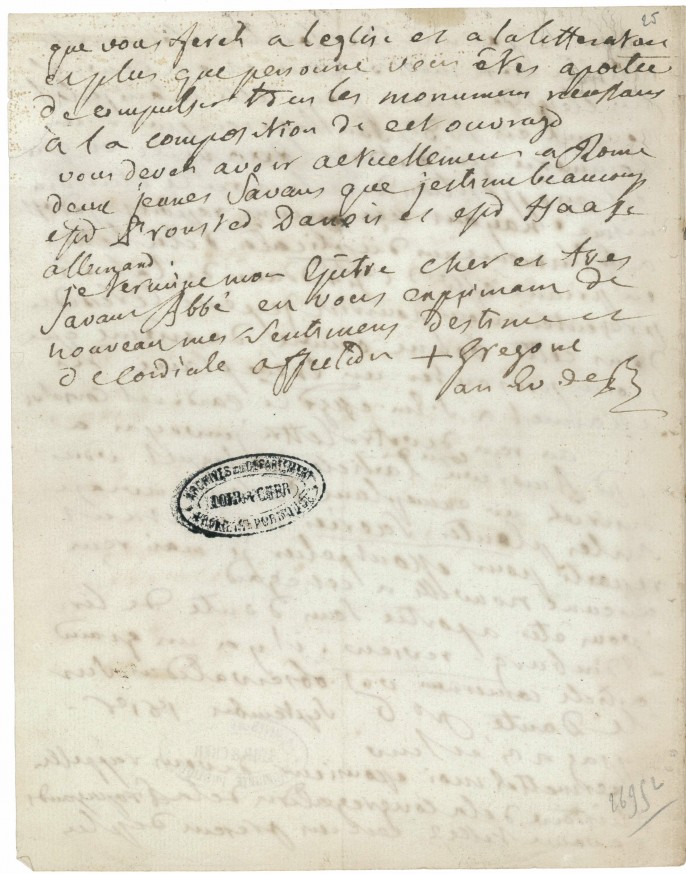 25
que vous ferez a leglise et a la litterature
et plus que personne vous êtes aportee
de compulser tous les monumens necessaires
à la composition de cet ouvrage
vous devez avoir actuellement a Rome
deux jeunes Savans que jestime beaucoup
Danois et Haase
allemand.
je termine mon Epitre cher et tres
Savant Abbé en vous exprimant de
nouveau mes Sentimens destime et
de cordiale affection + Gregoire
an Ev de B
ARCHIVES DU DEPARTEMENT
LOIR-&-CHER
PROPRIETE PUBLIQUE
26952